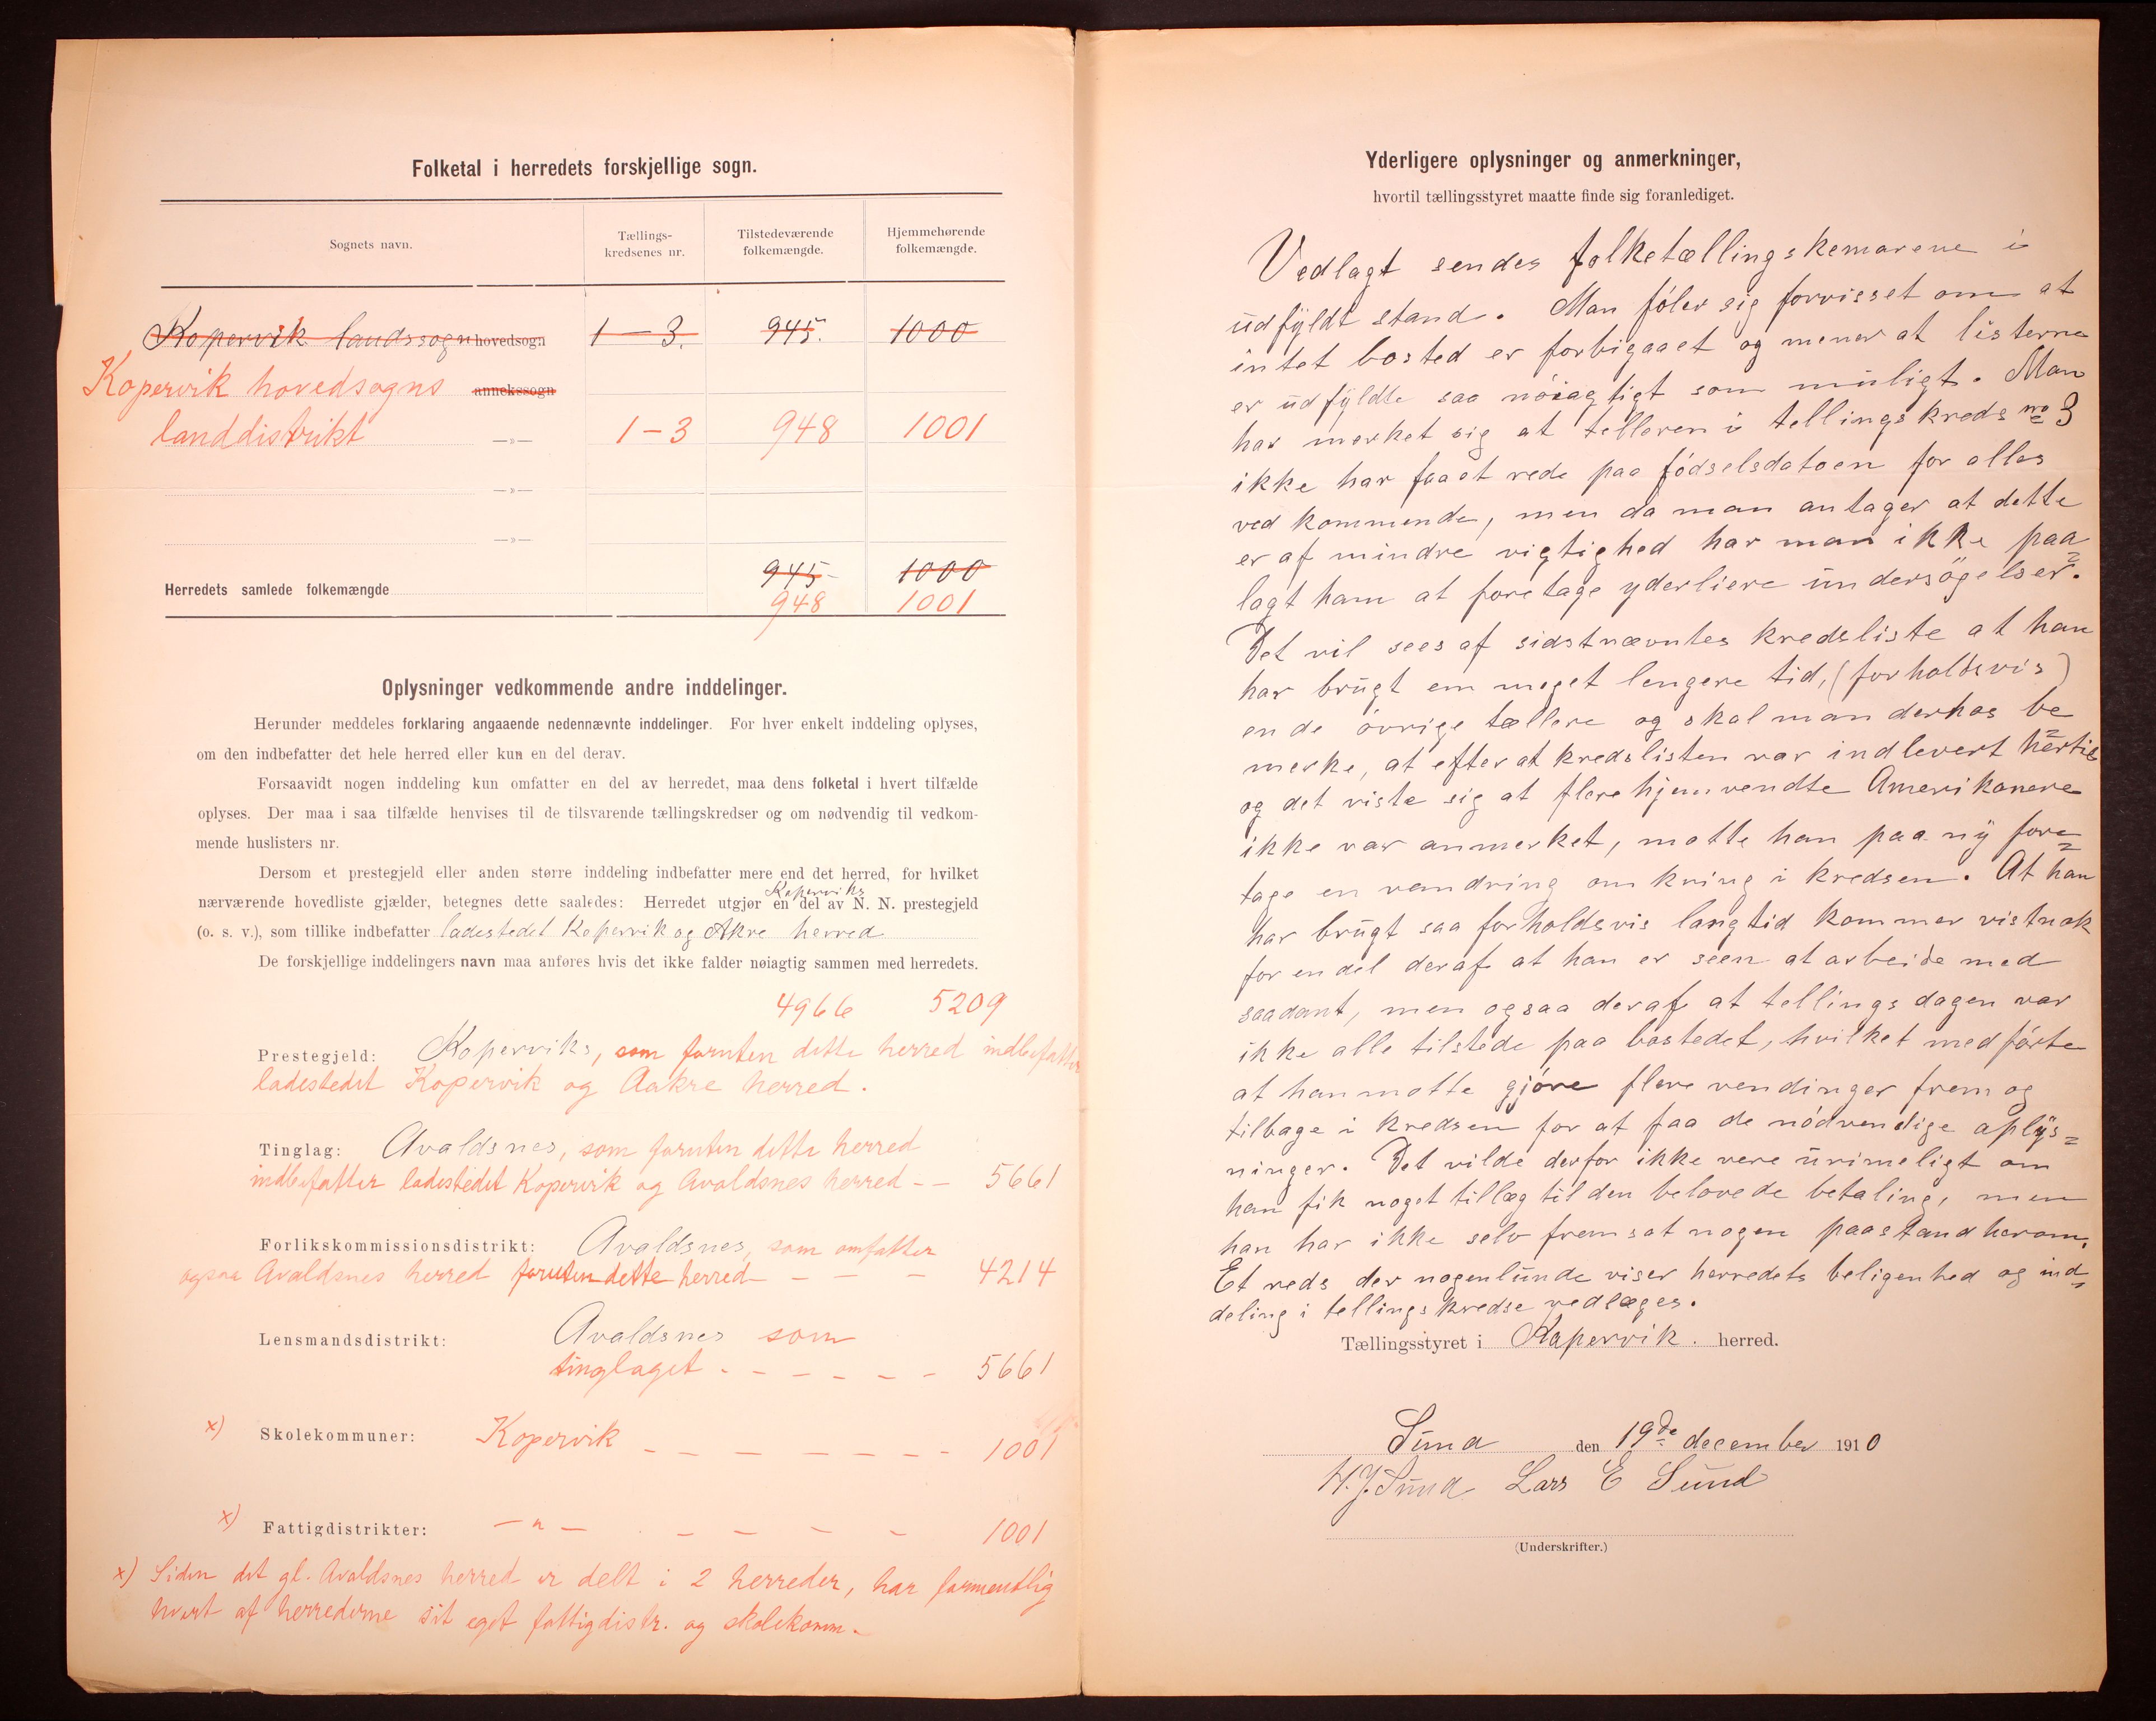 Folketal i herredets forskjellige sogn.
Sognets navn.
Tællings-
kredsenes nr.
Tilstedeværende
folkemængde.
Hjemmehørende
folkemængde.
Kopervik landssogn hovedsogn 1-3. 945. 1000
Kopervik hovedsogns annekssogn
landdistrikt —»— 1-3 948 1001
—»—
—»—
945 1000
Herredets samlede folkemængde
948 1001
Oplysninger vedkommende andre inddelinger.
Herunder meddeles forklaring angaaende nedennævnte inddelinger. For hver enkelt inddeling oplyses,
om den indbefatter det hele herred eller kun en del derav.
Forsaavidt nogen inddeling kun omfatter en del av herredet, maa dens folketal i hvert tilfælde
oplyses. Der maa i saa tilfælde henvises til de tilsvarende tællingskredser og om nødvendig til vedkom-
mende huslisters nr.
Dersom et prestegjeld eller anden større inddeling indbefatter mere end det herred, for hvilket
Koperviks
nærværende hovedliste gjælder, betegnes dette saaledes: Herredet utgjør en del av N. N. prestegjeld
(o. s. v.), som tillike indbefatter ladestedet Kopervik og Akre herred
De forskjellige inddelingers navn maa anføres hvis det ikke falder nøiagtig sammen med herredets.
4966 5209
Prestegjeld: Koperviks, som foruten dette herred indbefatter
ladestedet Kopervik og Aakre herred.
Tinglag: Avaldsnes, som foruten dette herred
indbefatter ladestedet Kopervik og Avaldsnes herred - - 5661
Forlikskommissionsdistrikt: Avaldsnes, som omfatter
ogsaa Avaldsnes herred foruten dette herred - - - 4214
Lensmandsdistrikt: Avaldsnes som
tinglaget - - - - - - 5661
x) Skolekommuner: Kopervik - - - - - - - 1001
x) Fattigdistrikter: —"— - - - - 1001
x) Siden det gl. Avaldsnes herred er delt i 2 herreder, har formentlig
hvert af herrederne sit eget fattigdistr. og skolekomm.
Yderligere oplysninger og anmerkninger,
hvortil tællingsstyret maatte finde sig foranlediget.
Vedlagt sendes folketællingskemarene i
udfyldt stand. Man føler sig forvisset om at
intet bosted er forbigaaet og mener at listerne
er udfyldte saa nøiagtigt som muligt. Man
har merket sig at telleren i tellingskreds no 3
ikke har faaet rede paa fødselsdatoen for alles
ved kommende, men da man antager at dette
er af mindre vigtighed har man ikke paa=
lagt ham at foretage yderliere undersøgelser.
Det vil sees af sidstnævntes kredsliste at han
har brugt em meget lengere tid, (forholdsvis)
en de øvrige tællere og skal man derhos be=
merke, at efter at kredslisten var indlevert hertil
og det viste sig at flere hjemvendte Amerikanere
ikke var anmerket, motte han paa ny fore=
tage en vandring omkring i kredsen. At han
har brugt saa forholdsvis langtid kommer vistnok
for en del deraf at han er seen at arbeide med
saadant, men ogsaa deraf at tellings dagen var
ikke alle tilstede paa bostedet, hvilket medførte
at han motte gjøre flere vendinger frem og
tilbage i kredsen for at faa de nødvendige oplys=
ninger. Det vilde derfor ikke vere urimeligt om
han fik noget tillæg til den belovede betaling, men
han har ikke selv fremsat nogen paastand herom.
Et reds der nogenlunde viser herredets beligenhed og ind=
deling i tellingskredse vedlæges.
Tællingsstyret i Kopervik. herred.
Sund den 19de december 1910
H. J. Sund Lars E Sund
(Underskrifter.)